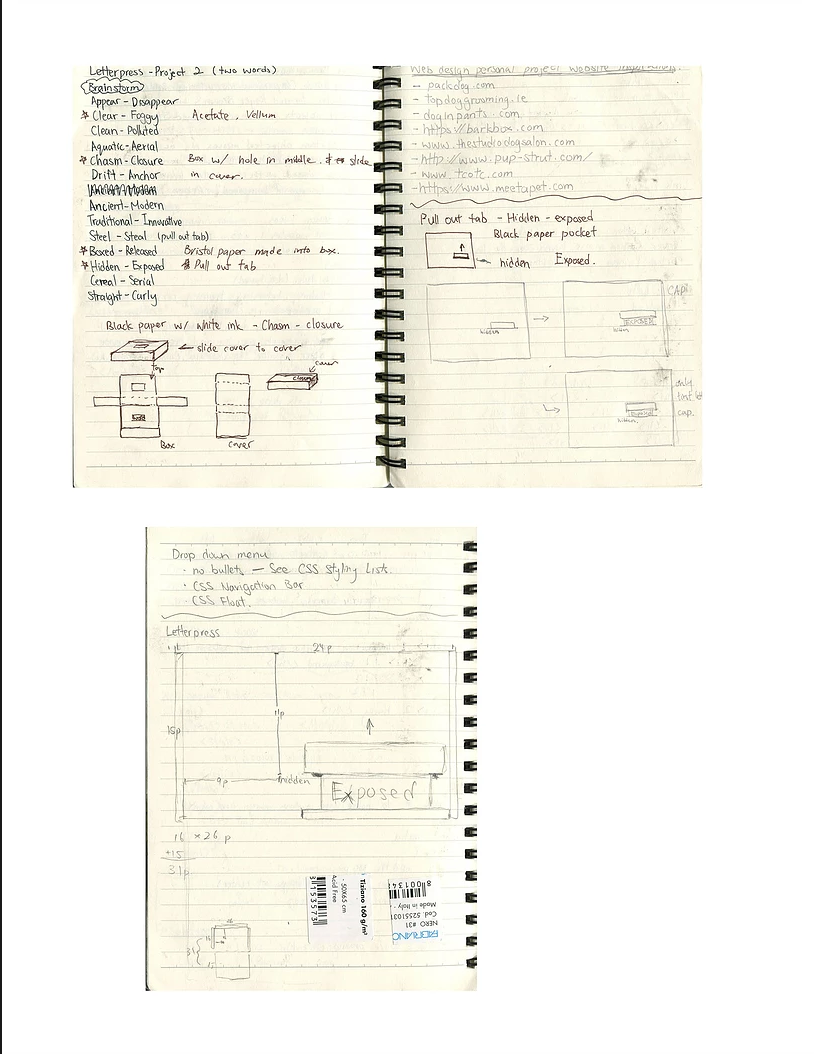 Letterpress - Project 2 (two words)
Brainstorm
Appear - Disappear
Clear - Foggy Acetate, Vellum
Clean - Polluted
Aquatic - Aerial
Chasm - Closure Box w/ hole in middle. slide
Drift - Anchor in cover.
Ancient - Modern
Traditional - Innovative
Steel - Steal (pull out tab)
Boxed - Released Bristol paper made into box.
Hidden - Exposed Pull out tab
Cereal - Serial
Straight - Curly
Black paper w/ white ink - Chasm - closure
slide cover to cover
top
cover
closure
Box
cover
Web design personal project website inspirations.
- packdog.com
- topdoggrooming.ie
- doginpants.com
- https://barkbox.com
- www.thestudiodogsalon.com
- http://www.pup-strut.com/
- www.tcotc.com
- https://www.meetapet.com
Pull out tab - Hidden - exposed
Black paper pocket
hidden Exposed.
hidden
EXPOSED
hidden
only
cap.
Exposed
hidden
Drop down menu
· no bullets — See CSS Styling Lists.
· CSS Navigation Bar
· CSS Float.
Letterpress
24p
11p
15p
9p
hidden
Exposed
16 x 26 p
+15
31p
26
31
15
Tiziano 160 g/m²
- 50X65 cm
Acid Free
8 001348
Made in Italy
Cod. 52551031
NERO #31
FABRIANO